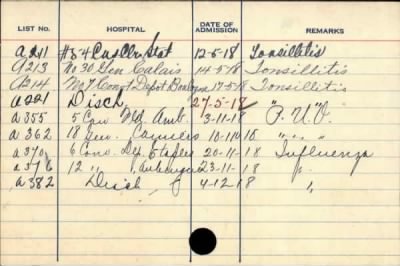 LIST No. HOSPITAL DATE OF ADMISSION REMARKS
A211 #54 Cas Clr Stat 12-5-18 Tonsillitis
A213 No 30 Gen Calais 14-5-18 Tonsillitis
A214 No 7 Conv Depot 17-5-18 Tonsillitis
A221 Disch. 27-5-18
A355 5 Can Fld. Amb. 3-11-18 "P.U.O.
A362 18 Gen. Camiers 10-11-18 " " "
A370 6 Conv. Dep. Etaples 20-11-18 Influenza
A376 12 " " 23-11-18 "
A382 Disch 4-12-18 "